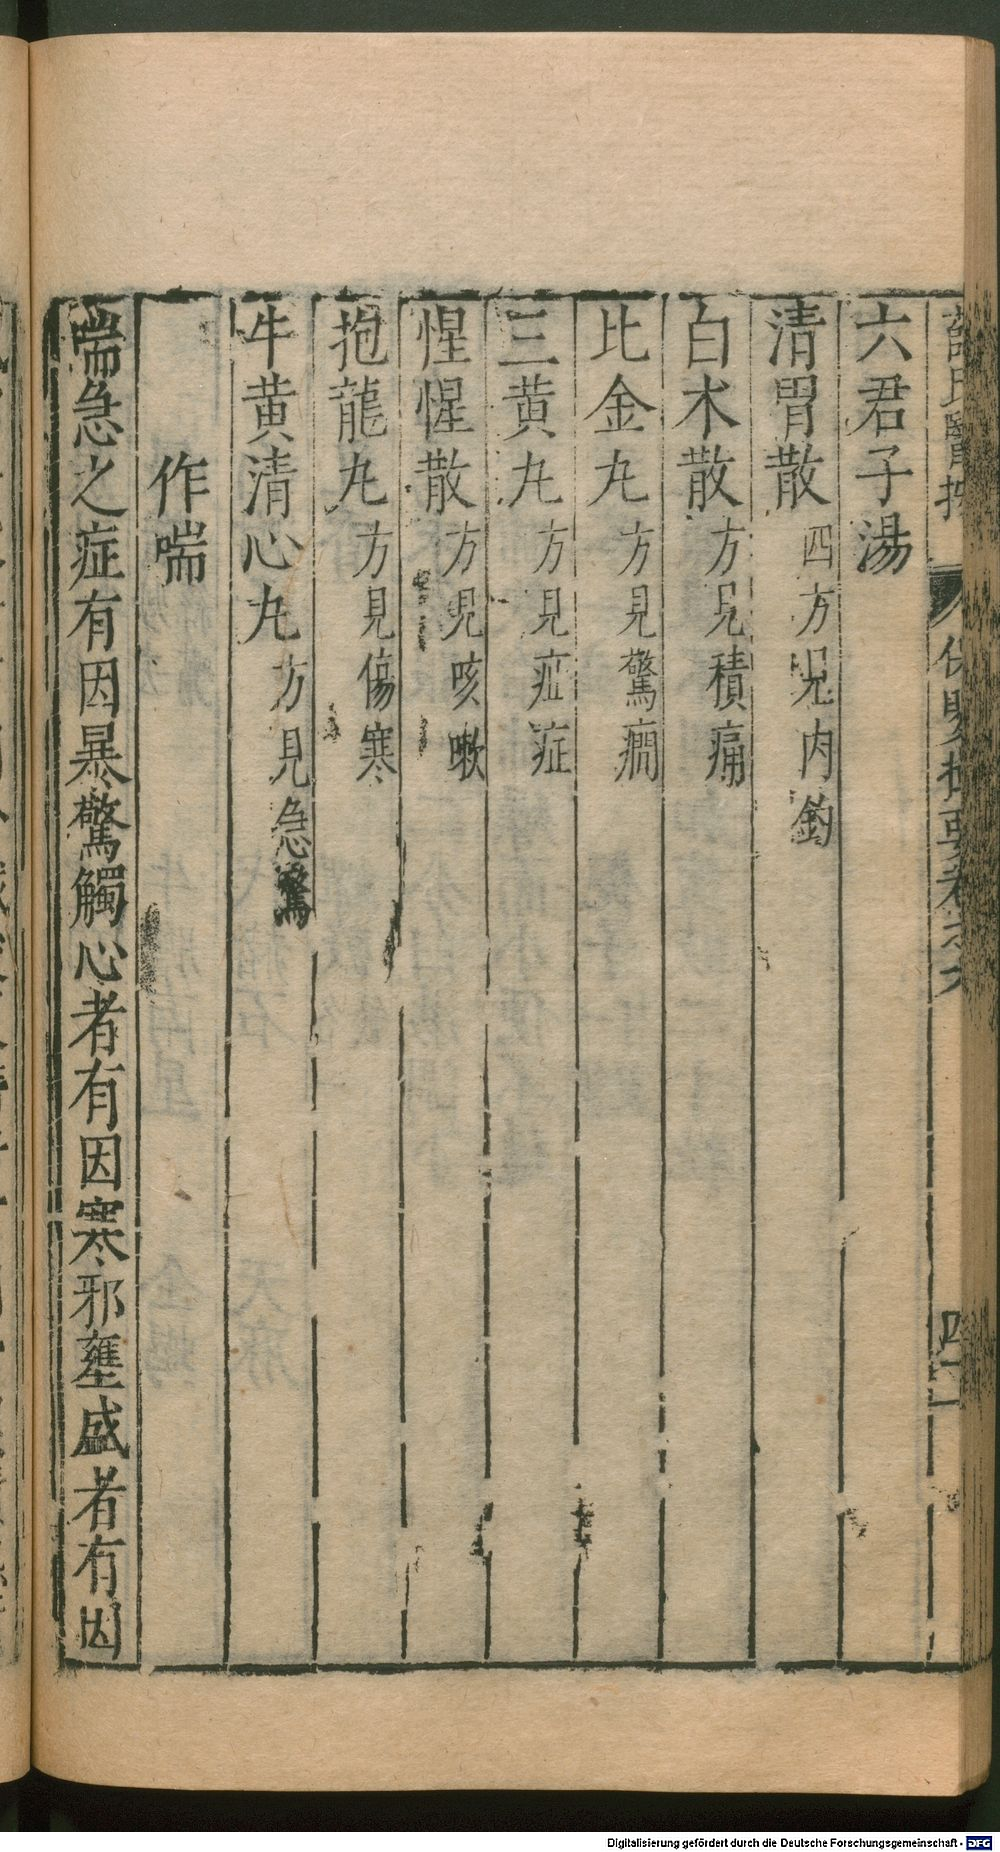 薛氏醫按 保嬰撮要卷之六
六君子湯
清胃散 四方見內釣
白朮散 方見積痛
比金丸 方見驚癇
三黃丸 方見疳症
惺惺散 方見咳嗽
抱龍丸 方見傷寒
牛黃清心丸 方見急驚
作喘
喘急之症有因暴驚觸心者有因寒邪壅盛者有因
Digitalisierung gefördert durch die Deutsche Forschungsgemeinschaft - DFG